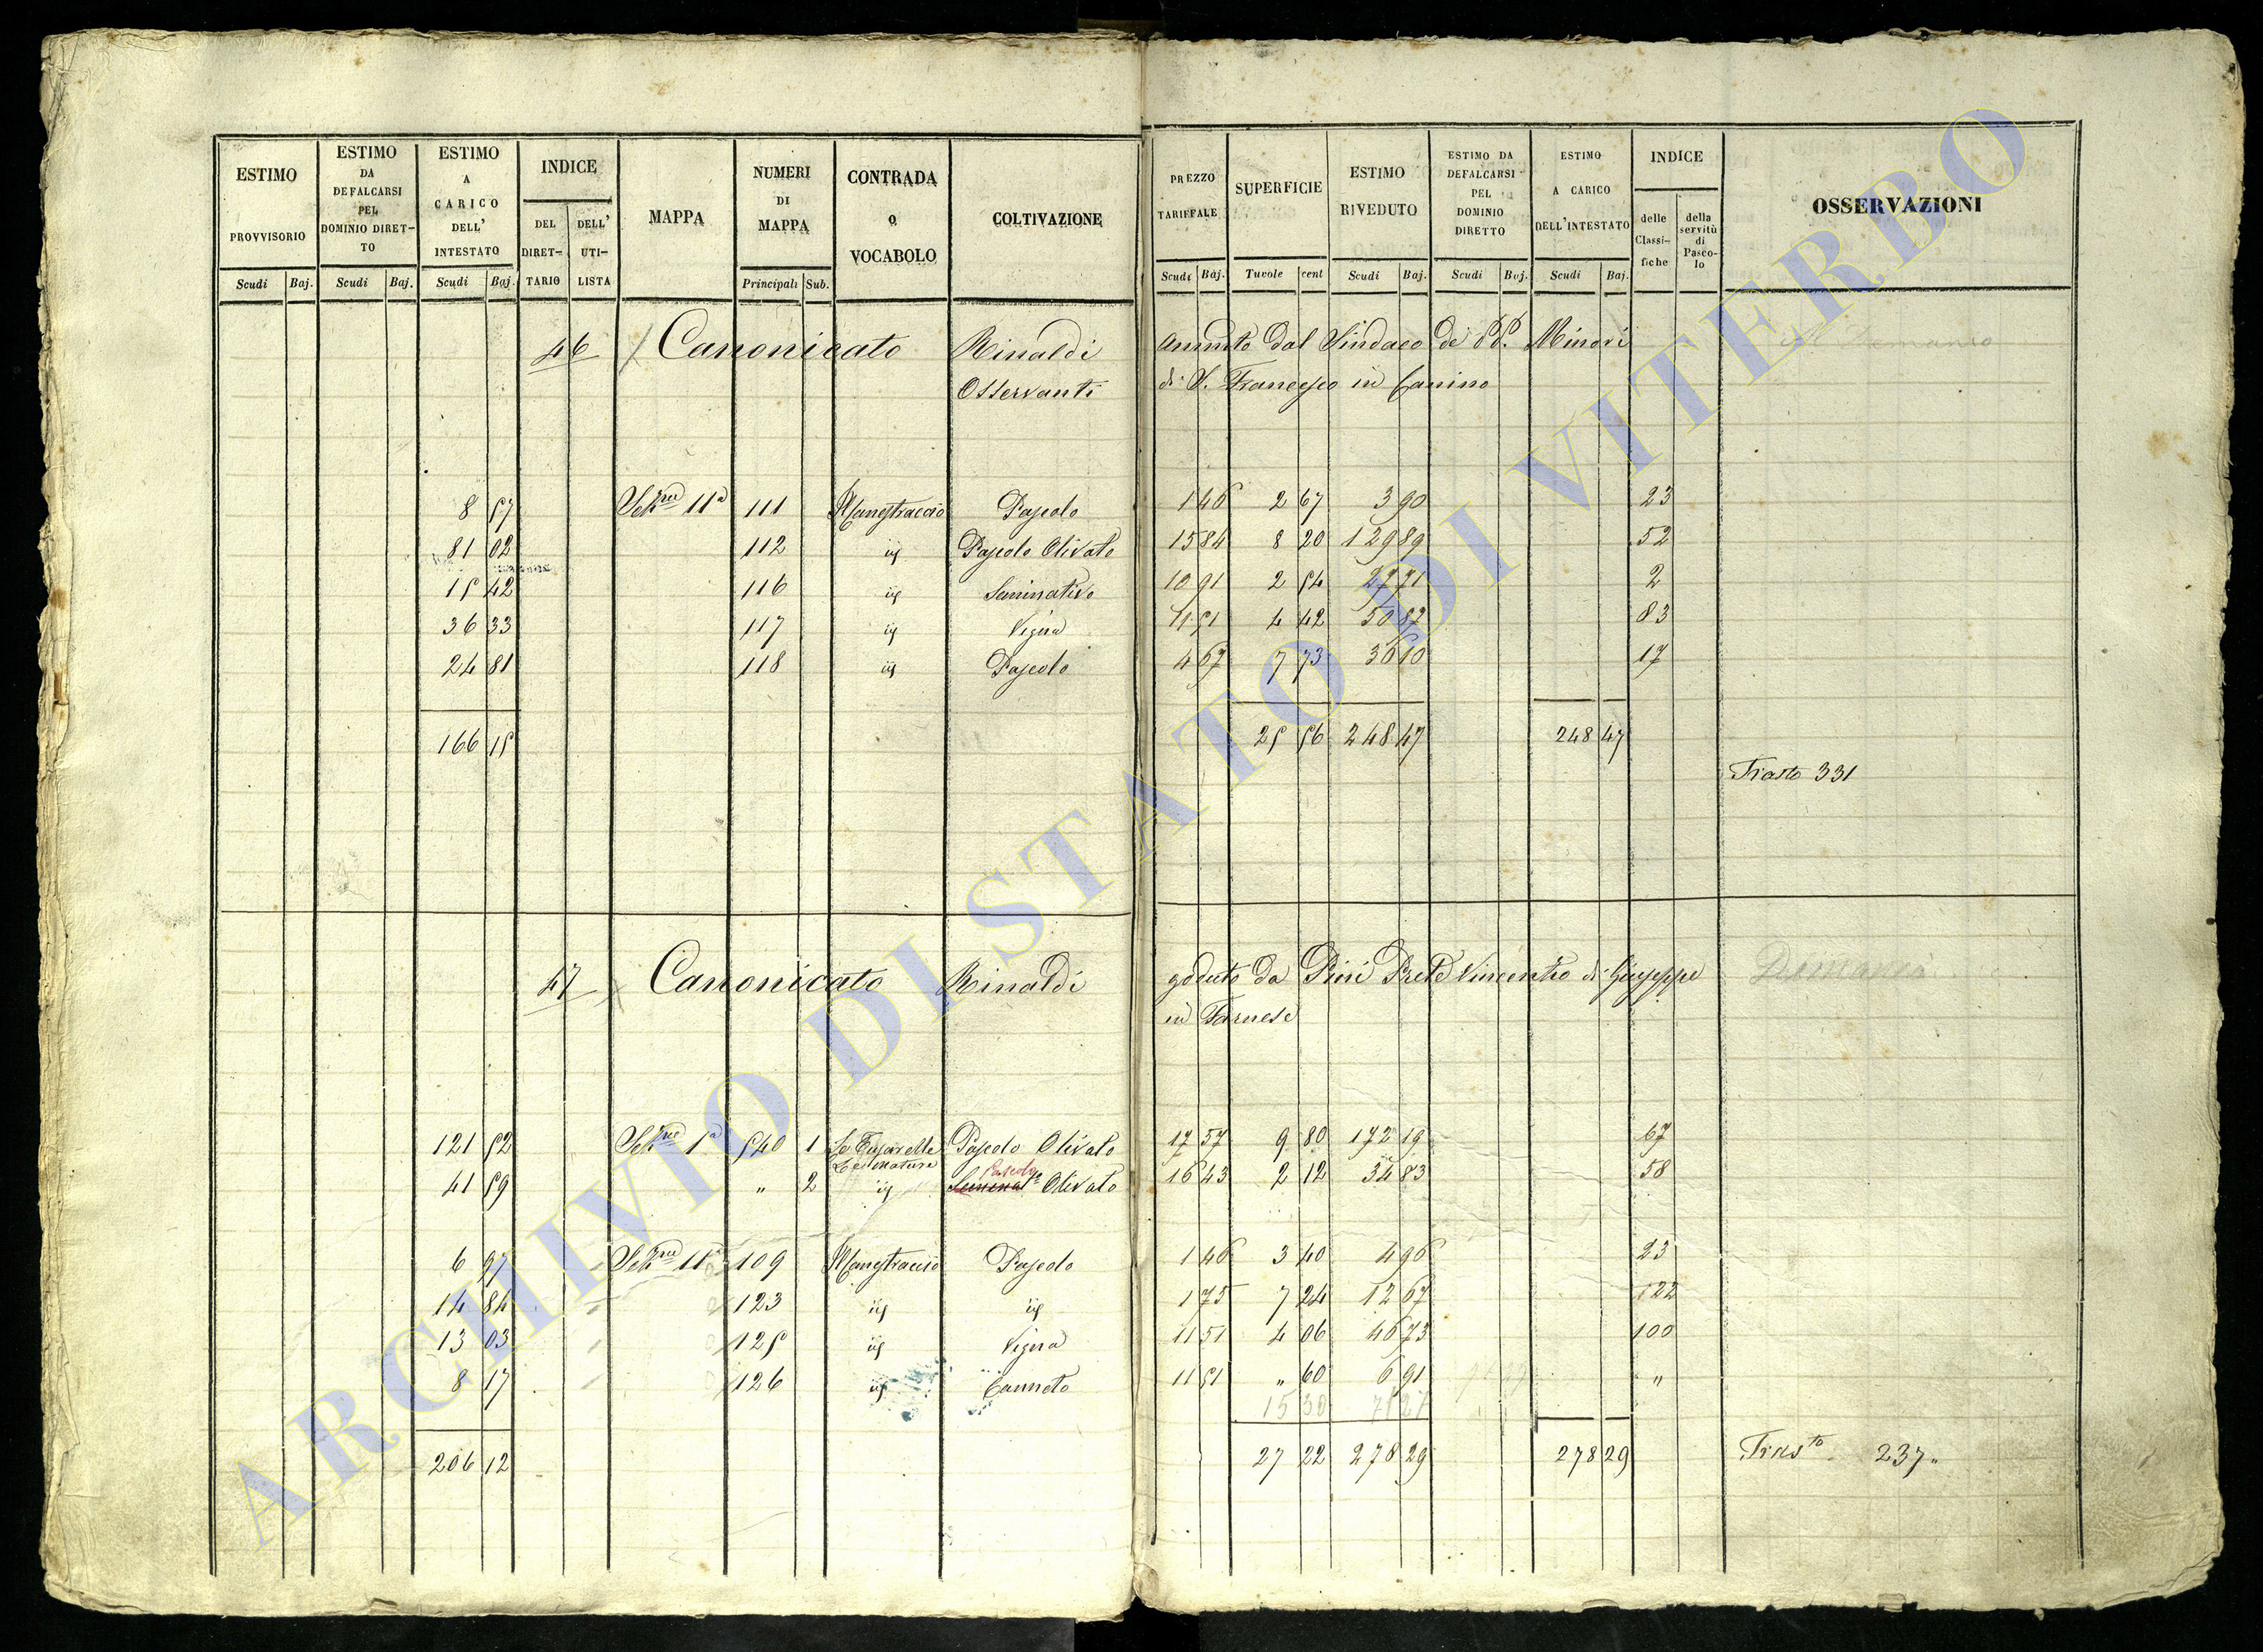 ESTIMO PROVVISORIO Scudi Baj.
ESTIMO DA DEFALCARSI PEL DOMINIO DIRETTO Scudi Baj.
ESTIMO A CARICO DELL' INTESTATO Scudi Baj.
INDICE DEL DIRETTARIO DELL' UTILISTA
MAPPA
NUMERI DI MAPPA Principali Sub.
CONTRADA o VOCABOLO
COLTIVAZIONE
PREZZO TARIFFALE Scudi Baj.
SUPERFICIE Tavole cent
ESTIMO RIVEDUTO Scudi Baj.
ESTIMO DA DEFALCARSI PEL DOMINIO DIRETTO Scudi Baj.
ESTIMO A CARICO DELL'INTESTATO Scudi Baj.
INDICE delle Classifiche della servitù di Pascolo
OSSERVAZIONI
46 Canonicato Rinaldi Ammto dal Sindaco de' PP. Minori
Osservanti di S. Francesco in Canino
8 57 Sekne 11a 111 Mangtraccio Pascolo 1 46 2 67 3 90 23
81 02 112 ij Pascolo Olivato 15 84 8 20 129 89 52
15 42 116 ij Seminativo 10 91 2 54 27 71 2
36 33 117 ij Vigna 11 51 4 42 50 87 83
24 81 118 ij Pascolo 4 67 7 73 36 10 17
166 15 25 56 248 47 248 47
Trasto 331
47 Canonicato Rinaldi goduto da Prete Vincenzo di Giuseppe Demanio
in Farnese
121 52 Sekne 1a 540 1 Pascolo Olivato 17 57 9 80 172 19 67
Pascolo
41 59 " 2 ij Seminato Olivato 16 43 2 12 34 83 58
6 97 Sekne 11a 109 Mangtraccio Pascolo 1 46 3 40 4 96 23
14 84 123 ij ij 1 75 7 24 12 67 122
13 03 125 ij Vigna 11 51 4 06 46 73 100
8 17 126 ij Canneto 11 51 " 60 6 91 "
15 30 71 27
206 12 27 22 278 29 278 29 Trasto 237
ARCHIVIO DI STATO DI VITERBO